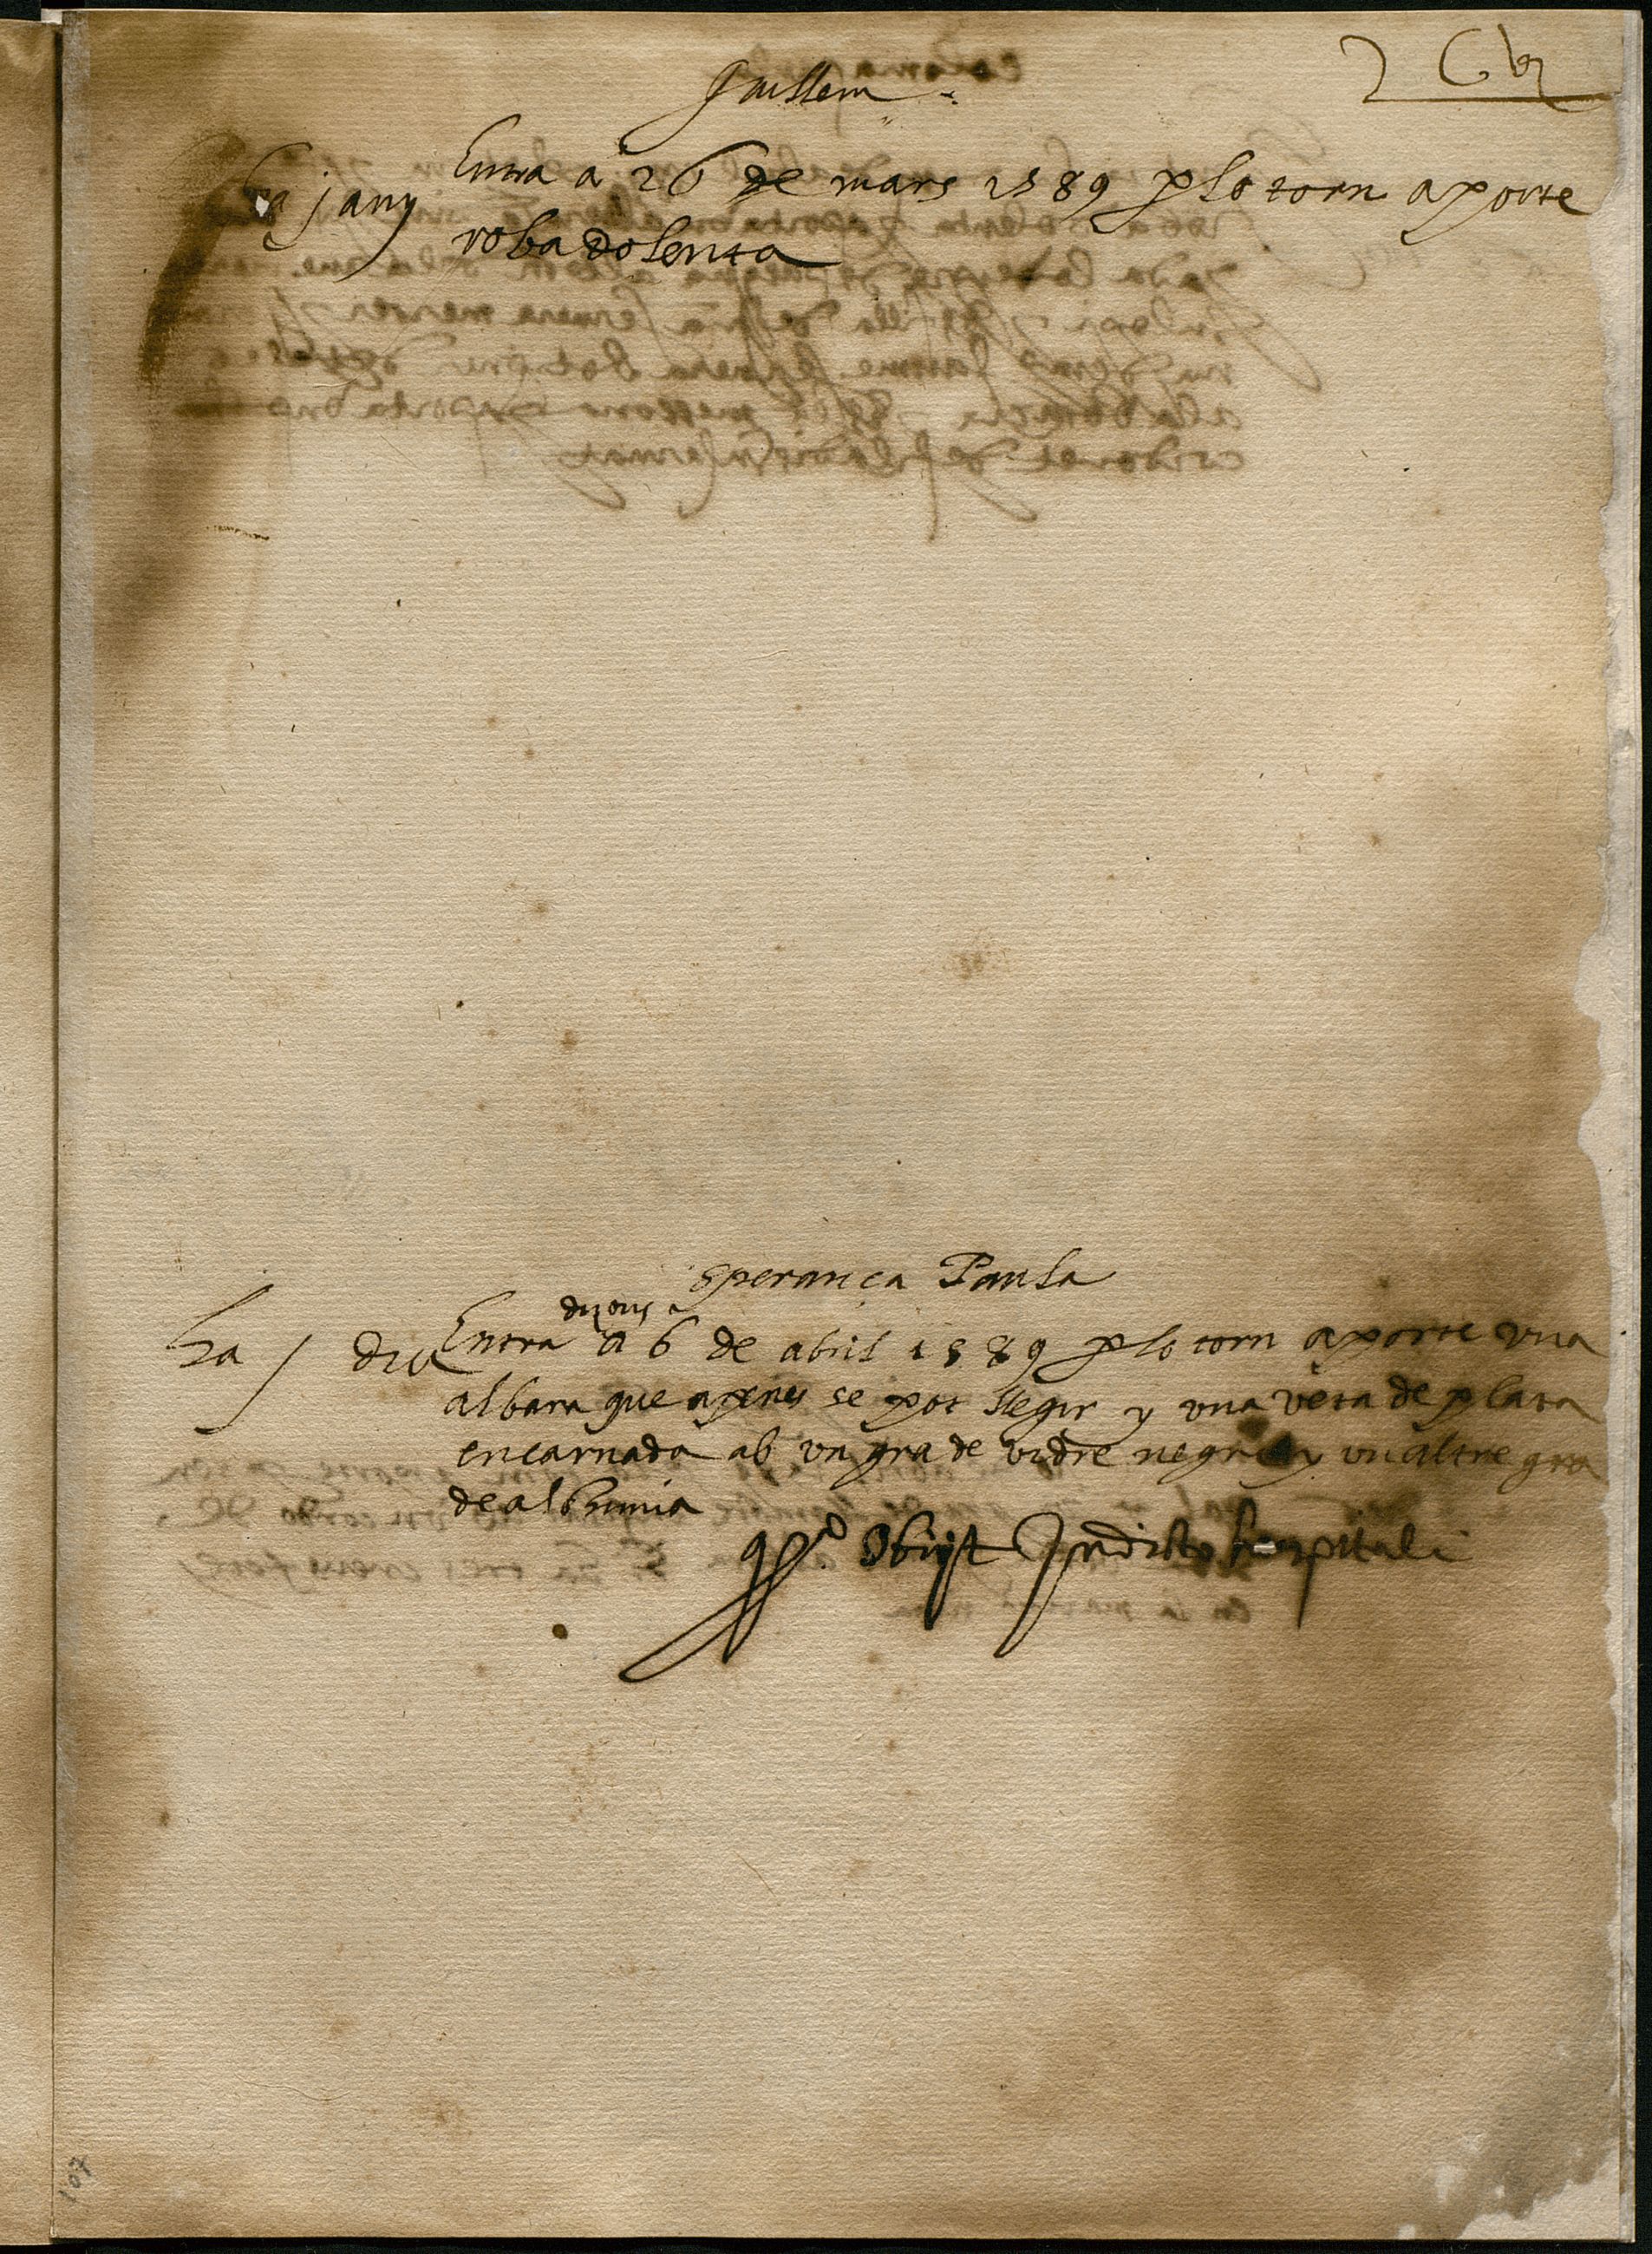 Guillem
ha j any Entra a 26 de mars 1589 p lo torn aporte
roba dolenta
Speranca Paula
dijous
ha j die Entra a 6 de abril 1589 p lo torn aporte vna
albara que apenes se pot llegir y vna veta de plata
encarnada ab vn gra de vidre negre y vn altre gra
de alchimia
Obijt In dicto hospitali
107